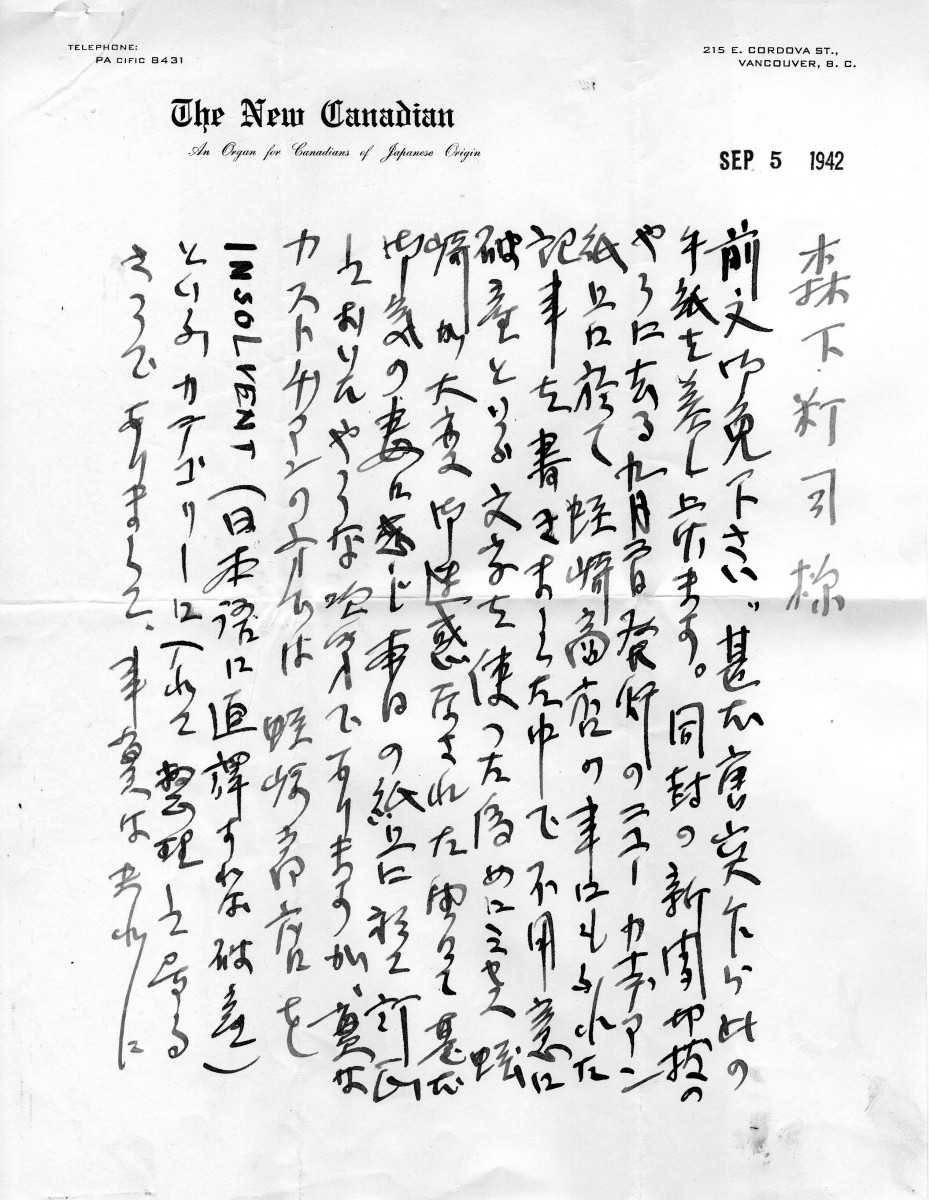 TELEPHONE:
PACIFIC 8431
215 E. CORDOVA ST.,
VANCOUVER, B. C.
The New Canadian
An Organ for Canadians of Japanese Origin
SEP 5 1942
森下 司 様
前文御免下さい。甚だ唐突乍ら此の
手紙を差し上げます。同封の新聞切抜の
やうに去る九月 日発行のニューカナデアン
紙上に於て蛭崎商店の事にもふれた
記事を書きました中で不用意に
破産といふ文字を使った為めに 蛭
崎 が大変御迷惑なされた 甚だ
御気の毒に感じ本日の紙上に於て訂正
しておいたやうな次第でありますが、実は
カストデアンの方では蛭崎商店を
INSOLVENT (日本語に直譯すれば破産)
といふカテゴリーに入れて整理して居る
さうでありまして、事実はまれに